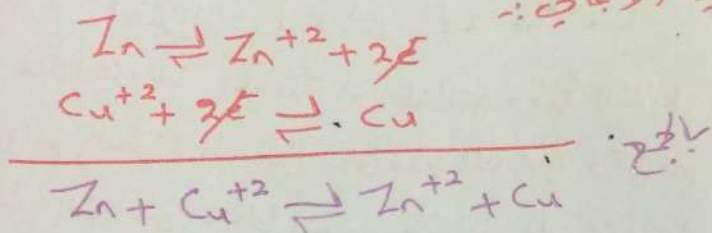 Zn ⇌ Zn⁺² + 2e
Cu⁺² + 2e ⇌ Cu
Zn + Cu⁺² ⇌ Zn⁺² + Cu